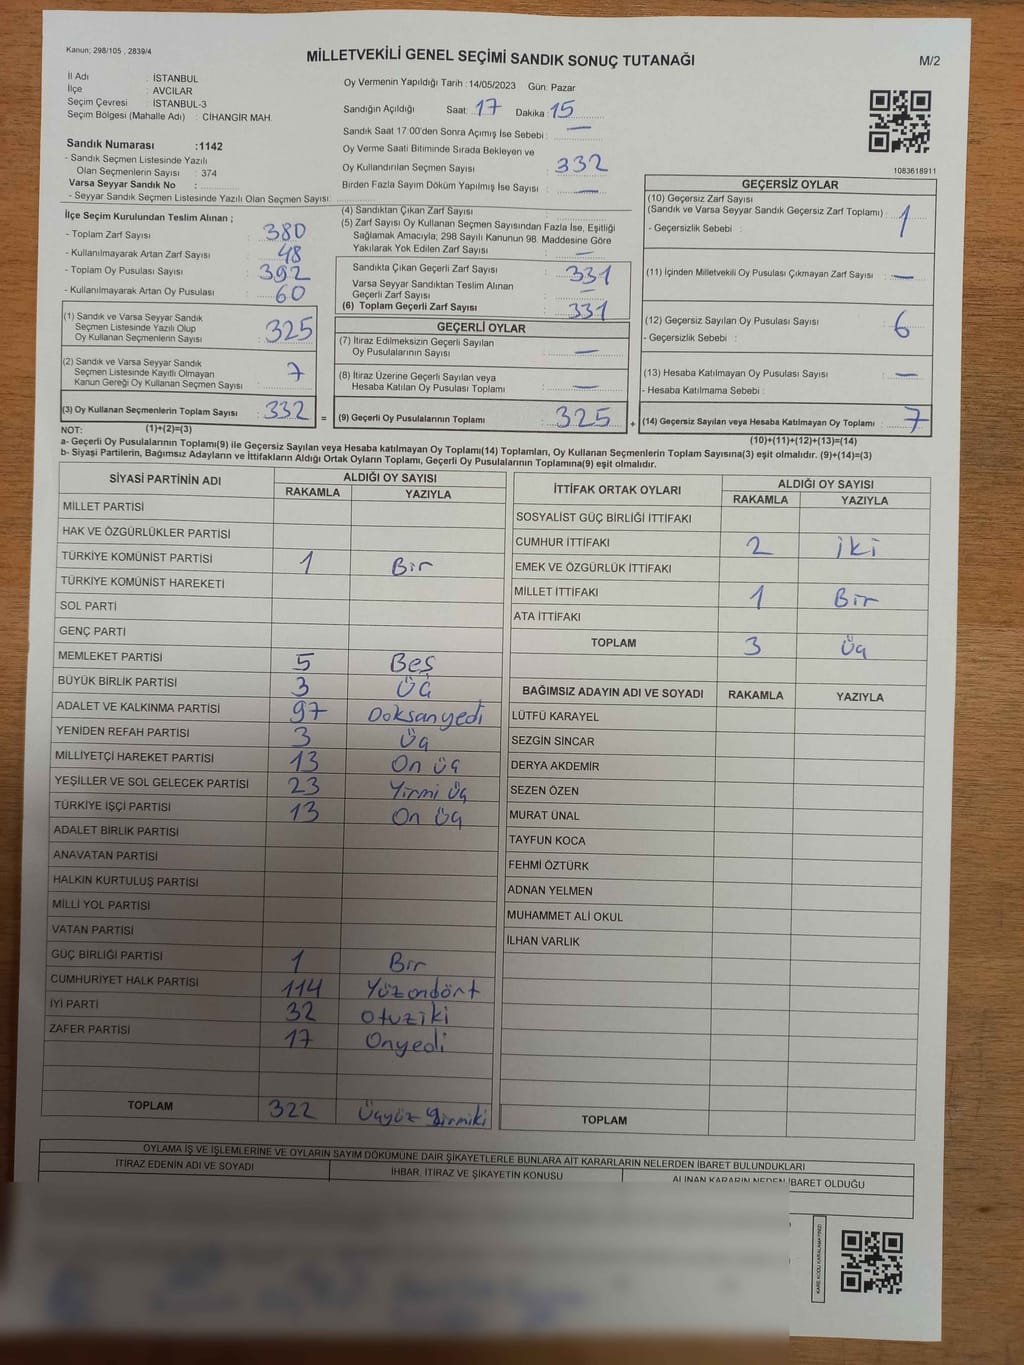 Kanun; 298/105 , 2839/4
MİLLETVEKİLİ GENEL SEÇİMİ SANDIK SONUÇ TUTANAĞI
M/2
İl Adı : İSTANBUL
İlçe : AVCILAR
Seçim Çevresi : İSTANBUL-3
Seçim Bölgesi (Mahalle Adı) : CİHANGİR MAH.
Sandık Numarası :1142
- Sandık Seçmen Listesinde Yazılı
Olan Seçmenlerin Sayısı : 374
Varsa Seyyar Sandık No :
- Seyyar Sandık Seçmen Listesinde Yazılı Olan Seçmen Sayısı:
Oy Vermenin Yapıldığı Tarih :14/05/2023 Gün: Pazar
Sandığın Açıldığı Saat: 17 Dakika : 15
Sandık Saat 17:00'den Sonra Açımış İse Sebebi : —
Oy Verme Saati Bitiminde Sırada Bekleyen ve
Oy Kullandırılan Seçmen Sayısı : 332
Birden Fazla Sayım Döküm Yapılmış İse Sayısı : —
1083618911
İlçe Seçim Kurulundan Teslim Alınan ;
- Toplam Zarf Sayısı : 380
- Kullanılmayarak Artan Zarf Sayısı : 48
- Toplam Oy Pusulası Sayısı : 392
- Kullanılmayarak Artan Oy Pusulası : 60
(1) Sandık ve Varsa Seyyar Sandık
Seçmen Listesinde Yazılı Olup
Oy Kullanan Seçmenlerin Sayısı : 325
(2) Sandık ve Varsa Seyyar Sandık
Seçmen Listesinde Kayıtlı Olmayan
Kanun Gereği Oy Kullanan Seçmen Sayısı : 7
(3) Oy Kullanan Seçmenlerin Toplam Sayısı : 332 =
(4) Sandıktan Çıkan Zarf Sayısı :
(5) Zarf Sayısı Oy Kullanan Seçmen Sayısından Fazla İse, Eşitliği
Sağlamak Amacıyla; 298 Sayılı Kanunun 98. Maddesine Göre
Yakılarak Yok Edilen Zarf Sayısı : —
Sandıkta Çıkan Geçerli Zarf Sayısı : 331
Varsa Seyyar Sandıktan Teslim Alınan
Geçerli Zarf Sayısı : —
(6) Toplam Geçerli Zarf Sayısı : 331
GEÇERLİ OYLAR
(7) İtiraz Edilmeksizin Geçerli Sayılan
Oy Pusulalarının Sayısı : —
(8) İtiraz Üzerine Geçerli Sayılan veya
Hesaba Katılan Oy Pusulası Toplamı : —
(9) Geçerli Oy Pusulalarının Toplamı : 325 +
GEÇERSİZ OYLAR
(10) Geçersiz Zarf Sayısı
(Sandık ve Varsa Seyyar Sandık Geçersiz Zarf Toplamı) : 1
- Geçersizlik Sebebi :
(11) İçinden Milletvekili Oy Pusulası Çıkmayan Zarf Sayısı : —
(12) Geçersiz Sayılan Oy Pusulası Sayısı : 6
- Geçersizlik Sebebi :
(13) Hesaba Katılmayan Oy Pusulası Sayısı : —
- Hesaba Katılmama Sebebi :
(14) Geçersiz Sayılan veya Hesaba Katılmayan Oy Toplamı : 7
NOT: (1)+(2)=(3)
(10)+(11)+(12)+(13)=(14)
a- Geçerli Oy Pusulalarının Toplamı(9) ile Geçersiz Sayılan veya Hesaba katılmayan Oy Toplamı(14) Toplamları, Oy Kullanan Seçmenlerin Toplam Sayısına(3) eşit olmalıdır. (9)+(14)=(3)
b- Siyasi Partilerin, Bağımsız Adayların ve İttifakların Aldığı Ortak Oyların Toplamı, Geçerli Oy Pusulalarının Toplamına(9) eşit olmalıdır.
SİYASİ PARTİNİN ADI ALDIĞI OY SAYISI
RAKAMLA YAZIYLA
MİLLET PARTİSİ
HAK VE ÖZGÜRLÜKLER PARTİSİ
TÜRKİYE KOMÜNİST PARTİSİ 1 Bir
TÜRKİYE KOMÜNİST HAREKETİ
SOL PARTİ
GENÇ PARTİ
MEMLEKET PARTİSİ 5 Beş
BÜYÜK BİRLİK PARTİSİ 3 Üç
ADALET VE KALKINMA PARTİSİ 97 Doksanyedi
YENİDEN REFAH PARTİSİ 3 Üç
MİLLİYETÇİ HAREKET PARTİSİ 13 On üç
YEŞİLLER VE SOL GELECEK PARTİSİ 23 Yirmi üç
TÜRKİYE İŞÇİ PARTİSİ 13 On üç
ADALET BİRLİK PARTİSİ
ANAVATAN PARTİSİ
HALKIN KURTULUŞ PARTİSİ
MİLLİ YOL PARTİSİ
VATAN PARTİSİ
GÜÇ BİRLİĞİ PARTİSİ 1 Bir
CUMHURİYET HALK PARTİSİ 114 Yüzondört
İYİ PARTİ 32 otuziki
ZAFER PARTİSİ 17 Onyedi
TOPLAM 322 Üçyüz yirmiki
İTTİFAK ORTAK OYLARI ALDIĞI OY SAYISI
RAKAMLA YAZIYLA
SOSYALİST GÜÇ BİRLİĞİ İTTİFAKI
CUMHUR İTTİFAKI 2 iki
EMEK VE ÖZGÜRLÜK İTTİFAKI
MİLLET İTTİFAKI 1 Bir
ATA İTTİFAKI
TOPLAM 3 Üç
BAĞIMSIZ ADAYIN ADI VE SOYADI RAKAMLA YAZIYLA
LÜTFÜ KARAYEL
SEZGİN SİNCAR
DERYA AKDEMİR
SEZEN ÖZEN
MURAT ÜNAL
TAYFUN KOCA
FEHMİ ÖZTÜRK
ADNAN YELMEN
MUHAMMET ALİ OKUL
İLHAN VARLIK
TOPLAM
OYLAMA İŞ VE İŞLEMLERİNE VE OYLARIN SAYIM DÖKÜMÜNE DAİR ŞİKAYETLERLE BUNLARA AİT KARARLARIN NELERDEN İBARET BULUNDUKLARI
İTİRAZ EDENİN ADI VE SOYADI İHBAR, İTİRAZ VE ŞİKAYETİN KONUSU ALINAN KARARIN NEDEN İBARET OLDUĞU
KARE KODU KARALAMAYINIZ!